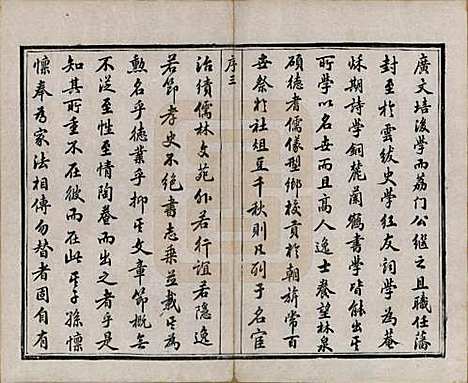 廣文培後學而荔门公繼之且職任藩
封至於雲紱史学紅友詞学為菴
侏期詩学銅麓蘭鶴書学皆能出其
所学以名世而且高人逸士養望林泉
碩德耆儒儀型鄉校貢於朝旂常百
世祭於社俎豆千秋則凡列于名宦
序三
治績儒林文苑外若行誼若隐逸
若節孝史不絶書志乘並載其為
勲名乎徳業乎抑其文章節概無
不泛至性至情陶菴而出之者乎是
知其所重不在彼而在此其子孫懍
懍奉为家法相傳勿替者固自有